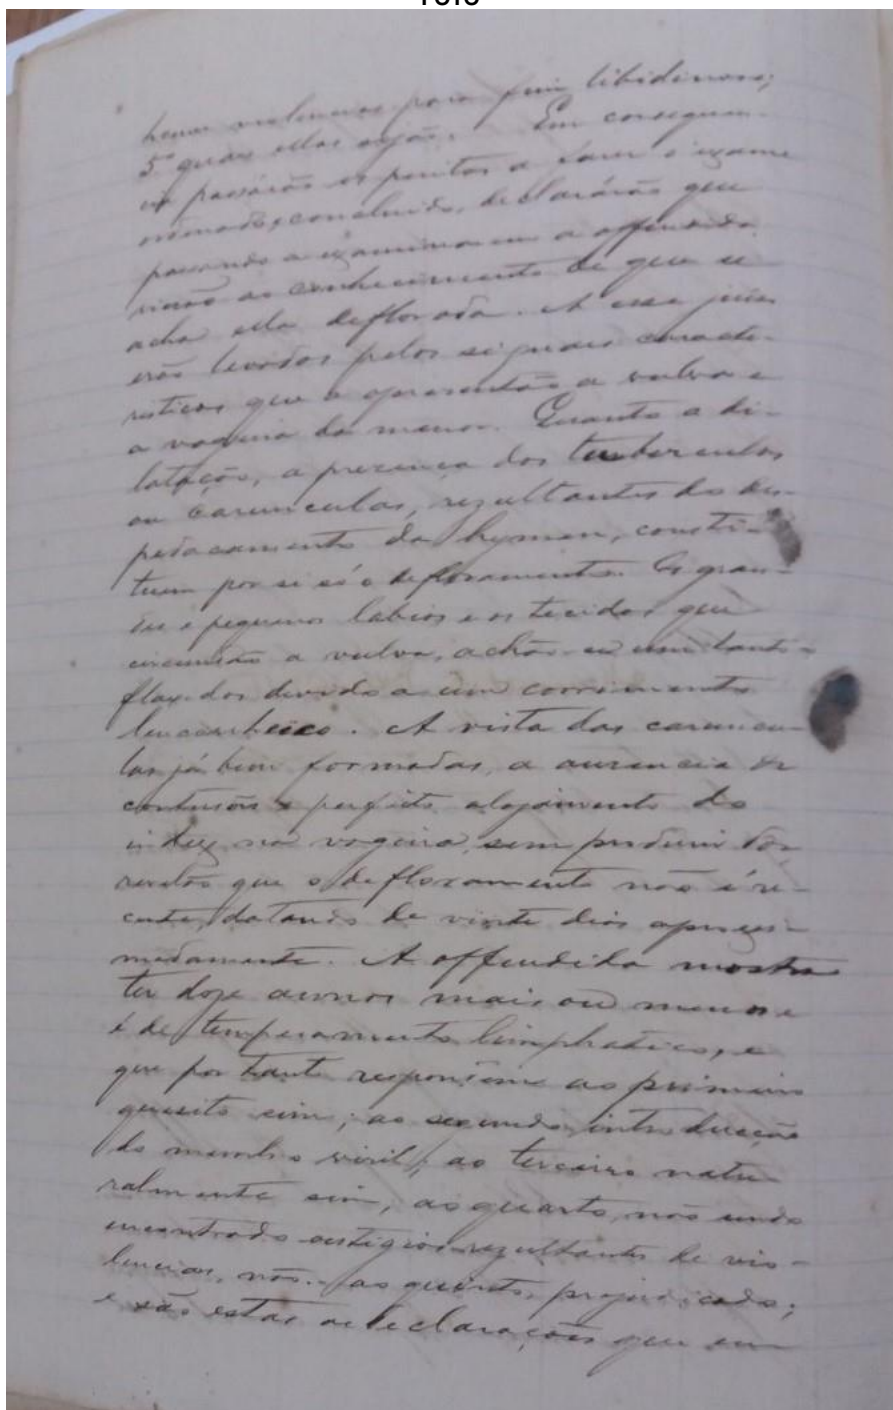 houve violencias para fim libidinoso;
5º quaes ellas sejão. Em consequen-
cia passárão os peritos a fazer o exame
ordenado, concluido, declarárão que
passando a examinarem a offendida
vierão ao conhecimento de que se
acha ella deflorada. A esse juizo
erão levados pelos signaes caracte-
risticos que apresentão a vulva e
a vagina da menor. Quanto a di-
latação, a presença dos tuberculos
ou carunculas, rezultantes do des-
pedaçamento do hymen, consti-
tuem por si só o defloramento. Os gran-
des e pequenos labios e os tecidos que
circundão a vulva, achão-se um tanto
flaxidos devido a um corrimento
leucorrheico. A vista das caruncu-
las já bem formadas, a ausencia de
contusões e perfeito alojamento do
index na vagina, sem produzir dor,
que o defloramento não é re-
cente, datando de vinte dias aproxi-
madamente. A offendida mostra
ter doze annos mais ou menos e
é de temperamento limphatico, e
que portanto respondem ao primeiro
quesito sim; ao segundo, introducção
do membro viril; ao terceiro natu-
ralmente sim, ao quarto, não sendo
encontrado vestigios rezultantes de vio-
lencias, não. ao quinto, prejudicado;
e são estas as declarações que em